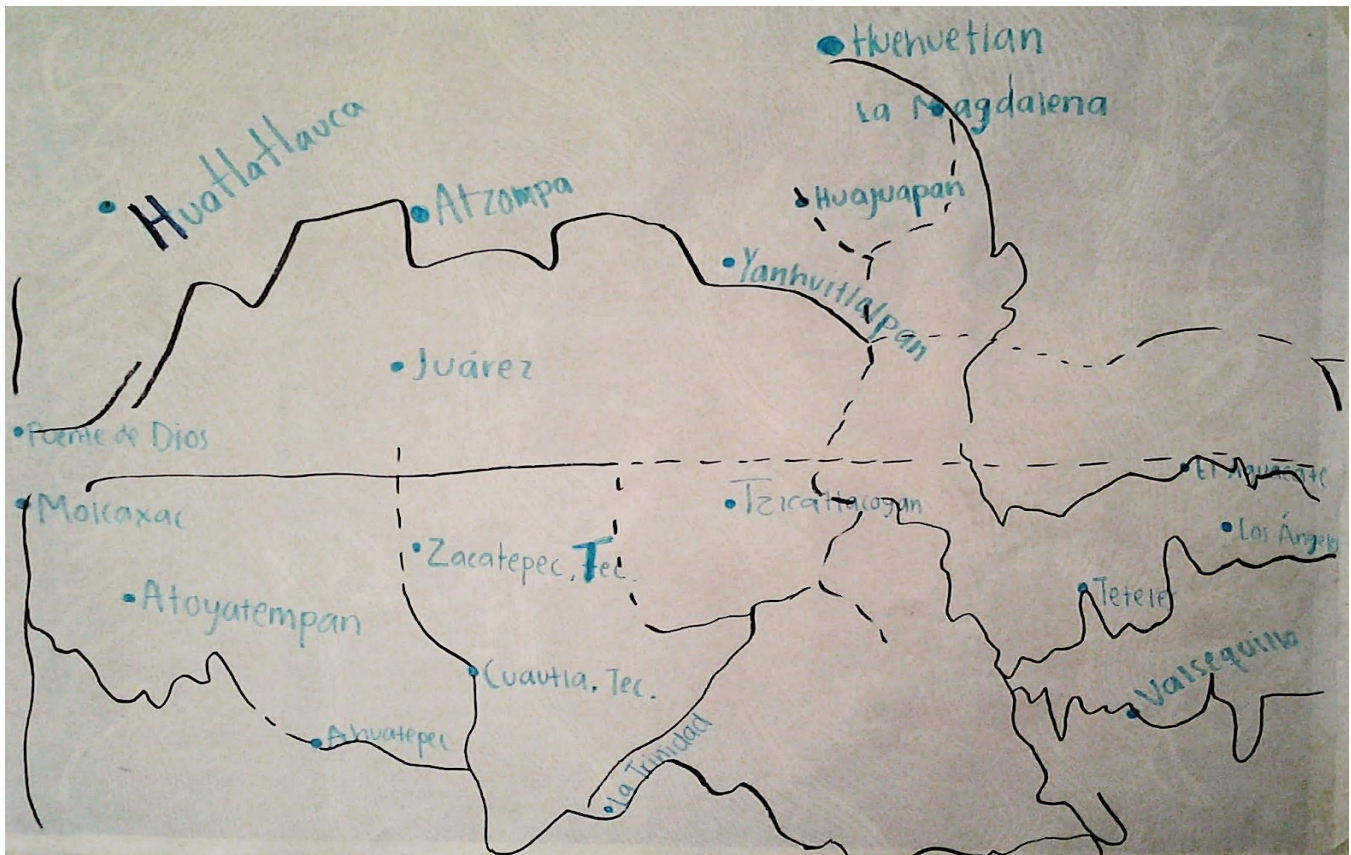 Huehuetlan
La Magdalena
Huatlatlauca
Huajuapan
Atzompa
Yanhuitlalpan
Juárez
Puente de Dios
El Aguacate
Molcaxac
Tzicatlacoyan
Los Ángeles
Zacatepec, Tec.
Atoyatempan
Tetela
Cuautla, Tec.
Valsequillo
Ahuatepec
La Trinidad